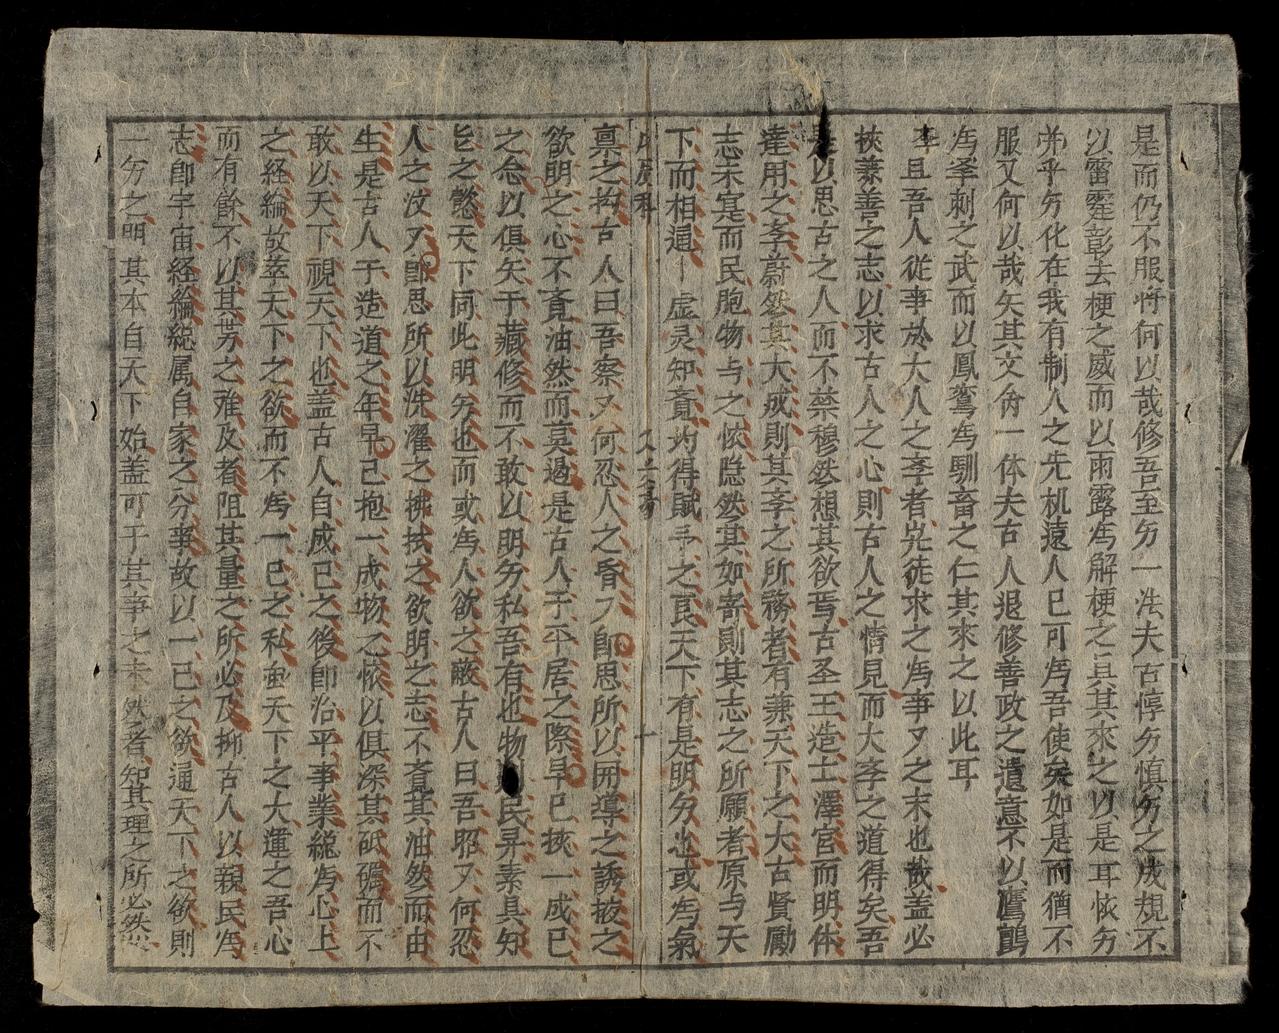 是而仍不服将何以哉修吾至㐱一法夫古惇㐱慎㐱之成規不
以雷霆彰去梗之威而以雨露為解梗之具其來之以是耳恢㐱
弗乎㐱化在我有制人之先机遠人已可為吾使矣如是而猶不
服又何以哉矢其文㐱一体夫古人退修善政之遺意不以鷹鸇
為擊刺之武而以鳳鸞為馴畜之仁其來之以此耳
李 且吾人従事於大人之李者岂徒求之為事又之末也哉盖必
挾兼善之志以求古人之心則古人之情見而大李之道得矣吾
是以思古之人而不禁穆然想其欲焉古圣王造士澤宮而明体
達用之李蔚然其大成則其李之所務者有兼天下之大古賢勵
志宋寔而民胞物与之恢隐然其如寄則其志之所願者原与天
下而相通 虚灵知斉均得賦予之良天下有是明㐱也或為氣
禀之拘古人曰吾察又何忍人之昏 即思所以開導之誘掖之
欲明之心不斉油然而莫遏是古人于平居之際早已挾一成已
之念以俱矢于藏修而不敢以明㐱私吾有也物則民昇素具知
㫖之懿天下同此明㐱也而或為人欲之蔽古人曰吾昭又何忍
人之汶 即思所以洗濯之拂拭之欲明之志不斉其油然而由
生是古人于造道之年早已抱一成物之懐以俱深其砥礪而不
敢以天下視天下也盖古人自成已之後即治平事業総為心上
之経綸故萃天下之欲而不為一已之私虽天下之大運之吾心
而有餘不以其势之难及者阻其量之所必及抑古人以親民為
志即宇宙経綸総属自家之分事故以一已之欲通天下之欲則
一㐱之明其本自天下始盖可于其事之未然者知其理之所必然